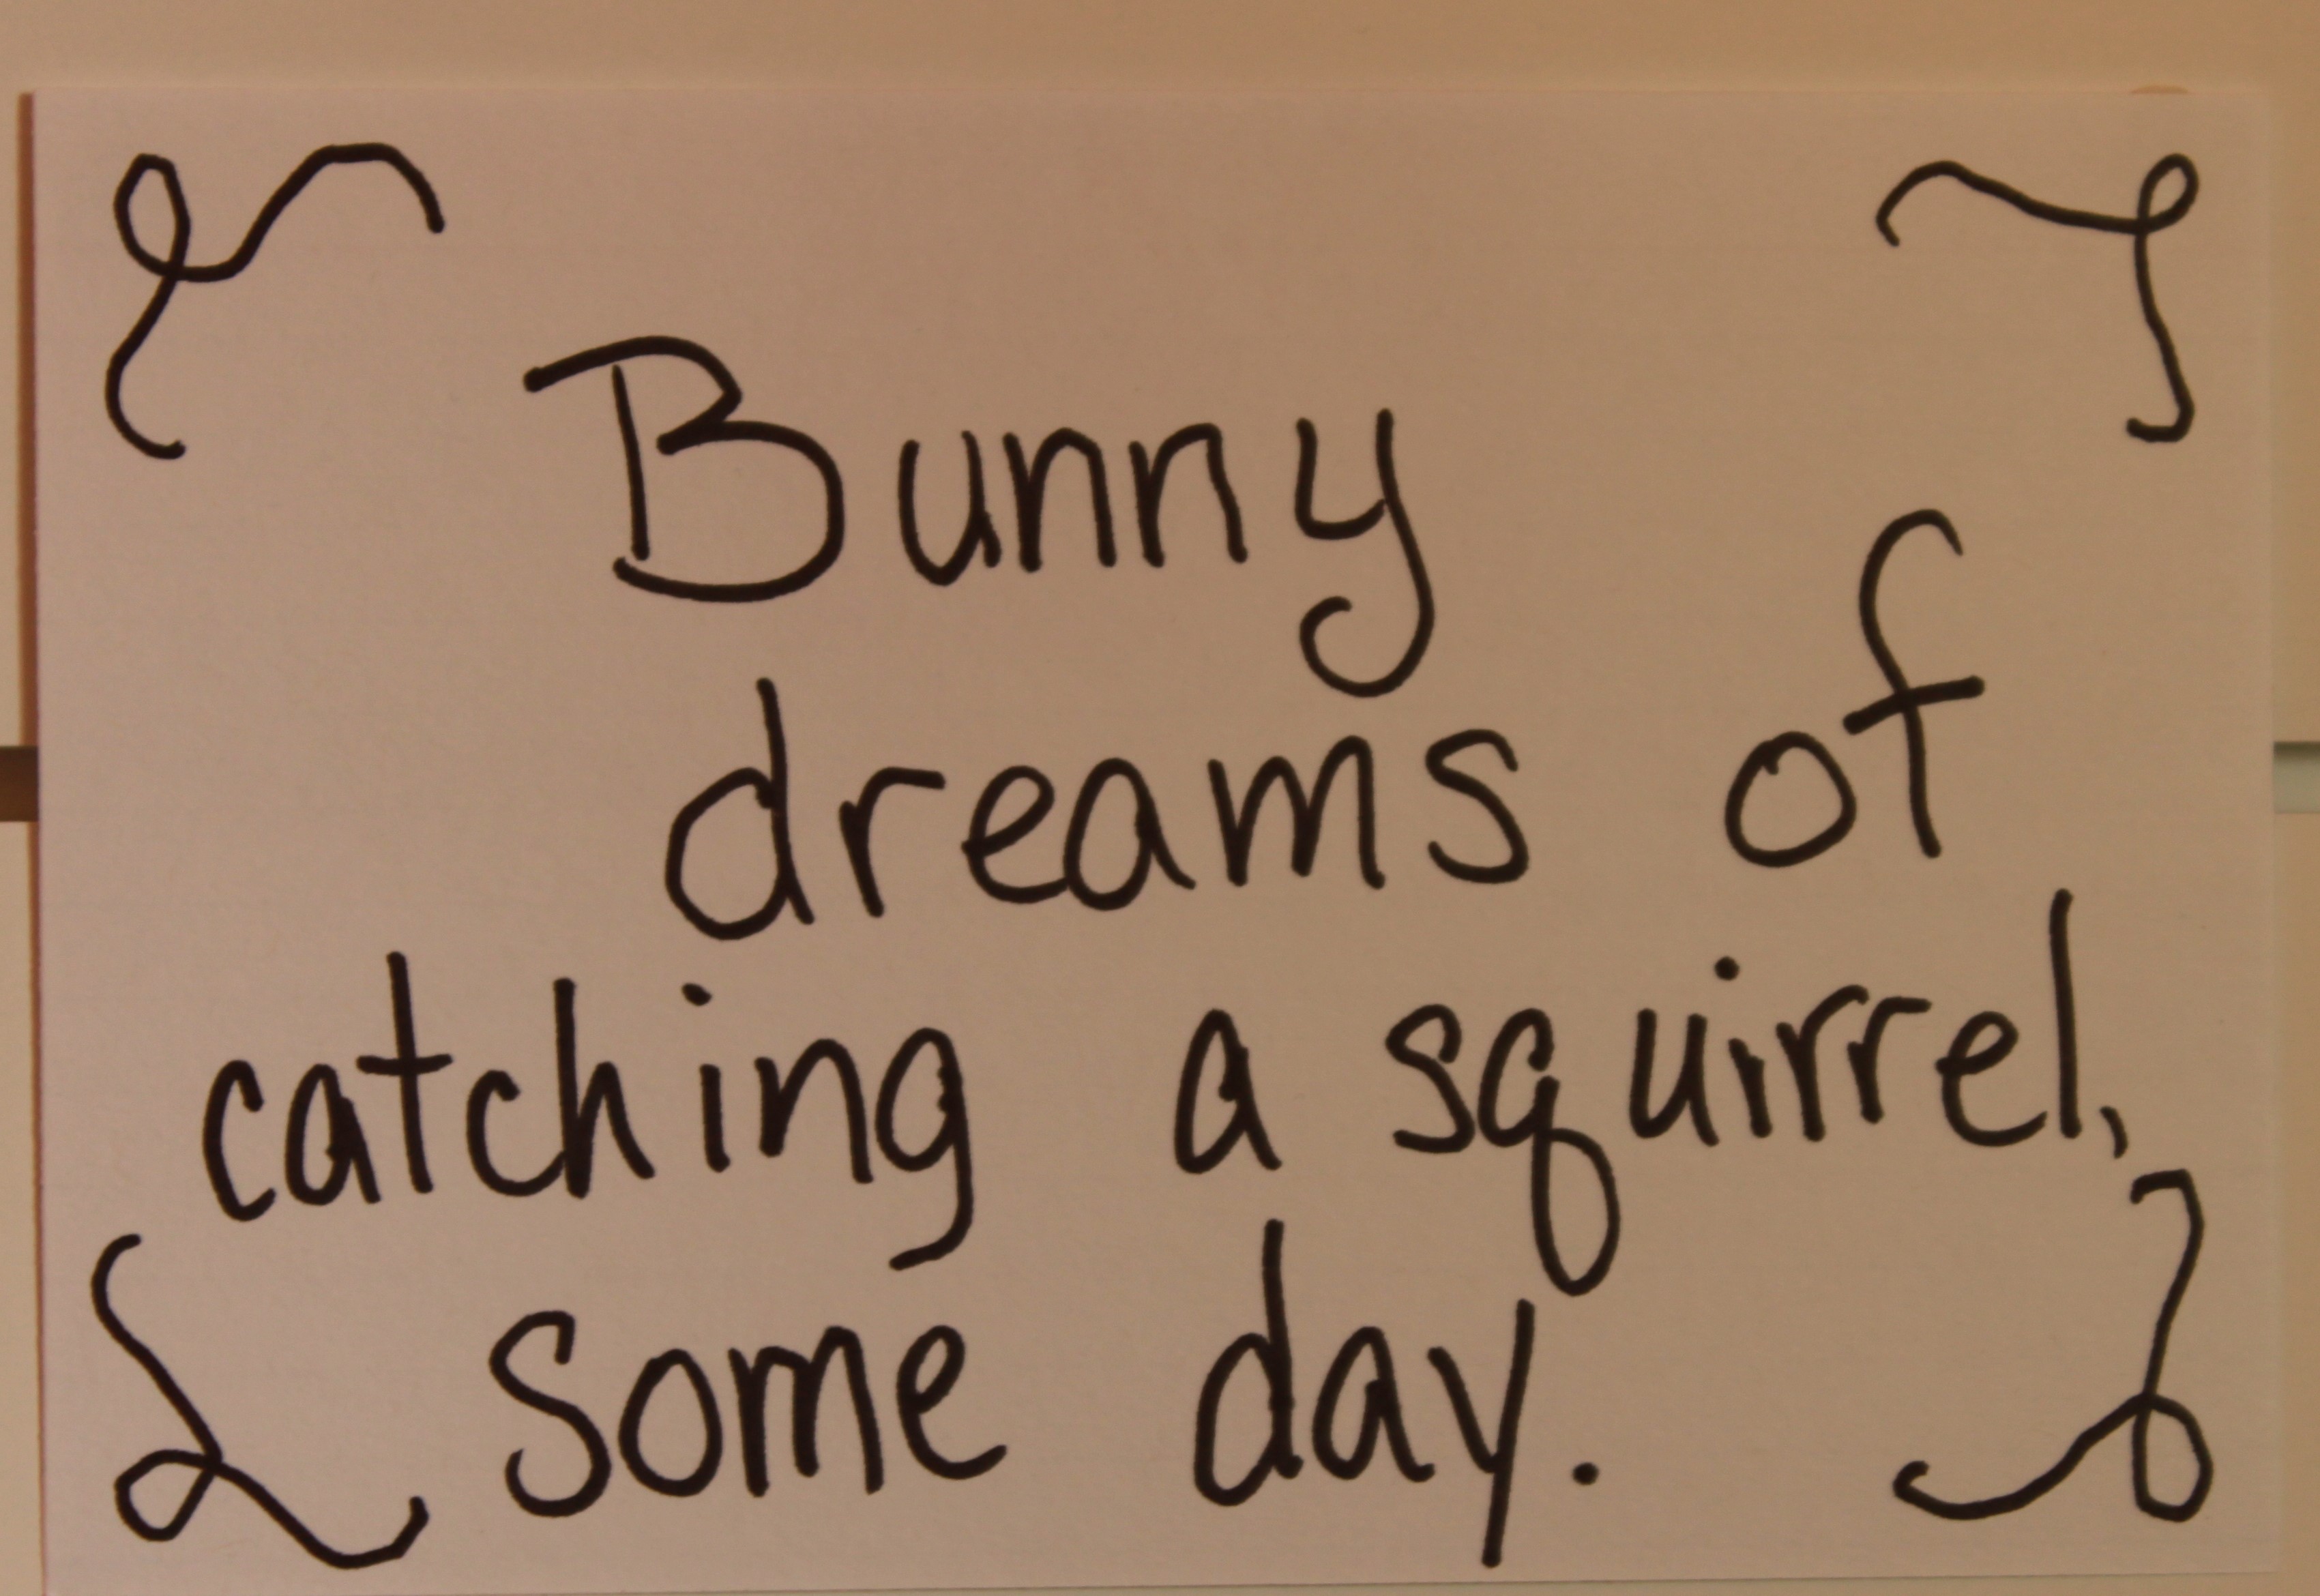 Bunny
dreams of
catching a squirrel,
some day.